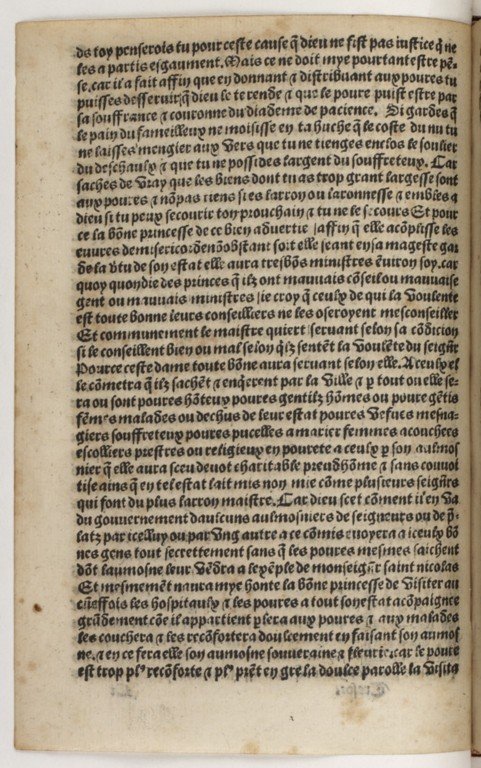 de toy penserois tu pour ceste cause q̃ dieu ne fist pas iustice q̃ ne
les a partis esgaument. Mais ce ne doit mye pourtant estre pē-
se. car il a fait affin que en donnant ⁊ distribuant aux poures tu
puisses desseruir q̃ dieu le te rende ⁊ que le poure puist estre par
sa souffrance ⁊ couronne du diademe de pacience. Si gardes q̃
le pain du fameilleux ne moisisse en ta huche q̃ le coste du nu tu
ne laisses mengier aux vers que tu ne tienges enclos le soulier
du deschaulx ⁊ que tu ne possides largent du souffreteux. Car
saches de vray que les biens dont tu as trop grant largesse sont
aux poures ⁊ nō pas tiens si es larron ou laronnesse ⁊ embles a
dieu si tu peux secourir ton prouchain ⁊ tu ne le secours Et pour
ce la bōne princesse de ce bien aduertie /affin q̃ elle acōplisse les
euures de misericorde nōobstant soit elle seant en sa mageste gar
de la v̄tu de son estat elle aura tresbōs ministres ēuiron soy. car
quoy quon die des princes q̃ ilz ont mauuais cōseil ou mauuaise
gent ou mauuais ministres /ie croy q̃ ceulx de qui la voulente
est toute bonne leurs conseilliers ne les oseroyent mesconseiller
Et communement le maistre quiert seruant selon sa cōdicion
si le conseillent bien ou mal selon q̃ ilz sentēt la voulēte du seigñr
Pource ceste dame toute bōne aura seruant selon elle. A ceulx el
le cōmetra q̃ ilz sachēt ⁊ enq̄rent par la ville ⁊ p̱ tout ou elle se-
ra ou sont poures hōteux poures gentilz hōmes ou poure gētis
fēmes malades ou decheus de leur estat poures vefues mesna-
giers souffreteux poures pucelles a marier femmes acouchees
escolliers prestres ou religieux en pourete a ceulx p̱ son aulmos
nier q̃ elle aura sceu deuot charitable preudhōme ⁊ sans couuoi
tise ains q̃ en tel estat lait mis non mie cōme plusieurs seigñrs
qui font du plus larron maistre. Car dieu scet cōment il en va
du gouuernement daulcuns aulmosniers de seigneurs ou de p̄-
latz par icelluy ou par vng autre a ce cōmis enuoyera a iceulx bō
nes gens tout secrettement sans q̃ les poures mesmes saichent
dōt laumosne leur vēdra a lexēple de monseigñr saint nicolas
Et mesmemēt naura mye honte la bōne princesse de visiter au
cūeffois les hospitaulx ⁊ les poures a tout son estat acōpaignee
grādement cōe il appartient p̱lera aux poures ⁊ aux malades
les couchera ⁊ les recōfortera doulcement en faisant son aumos
ne. ⁊ en ce fera elle son aumosne souueraine ⁊ fleurie. car le poure
est trop pl⁹ recōforte ⁊ pl⁹ prēt en gre la doulce parolle la visita